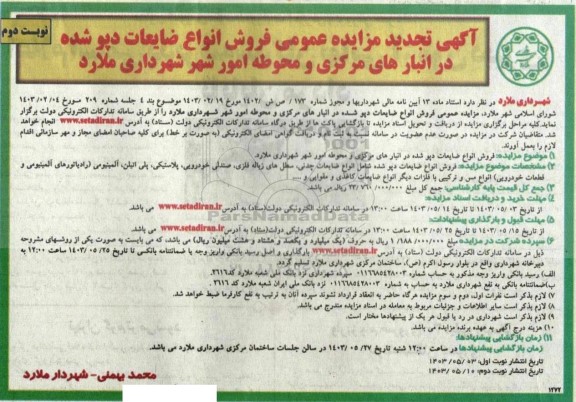 نوبت دوم
آگهی تجدید مزایده عمومی فروش انواع ضایعات دپو شده
در انبار های مرکزی و محوطه امور شهر شهرداری ملارد
شهرداری ملارد در نظر دارد استناد ماده ۱۳ آیین نامه مالی شهرداریها و مجوز شماره ۱۷۳ / ص ش /۱۴۰۲ مورخ ۱۴۰۳/۰۲/۱۹ موضوع بند ۴ جلسه شماره ۲۰۹ مورخ ۱۴۰۳/۰۲/۰۴
شورای اسلامی شهر ملارد، مزایده عمومی فروش انواع ضایعات دپو شده در انبار های مرکزی و محوطه امور شهر شهرداری ملارد را از طریق سامانه تدارکات الکترونیکی دولت برگزار
نماید.کلیه مراحل برگزاری مزایده از دریافت و تحویل اسناد مزایده تا بازگشایی پاکت ها از طریق درگاه سامانه تدارکات الکترونیکی دولت (ستاد) به آدرس www.setadiran.ir انجام خواهد
شد. متقاضیان شرکت در مزایده در صورت عدم عضویت در سامانه نسبت به ثبت نام و دریافت گواهی امضای الکترونیکی (به صورت بر خط) برای کلیه صاحبان امضای مجاز و مهر سازمانی اقدام
لازم را بعمل آورند.
۱) موضوع مزایده: فروش انواع ضایعات دپو شده در انبار های مرکزی و محوطه امور شهر شهرداری ملارد
۲) مشخصات موضوع مزایده: فروش انواع ضایعات دپو شده شامل انواع ضایعات چدنی، سطل های زباله فلزی، صندلی خودرویی، پلاستیکی، پلی اتیلن، آلمینیومی (رادیاتورهای آلمینیومی و
قطعات خودرویی) انواع مس و ترکیبی با فلزات دیگر انواع ضایعات کاغذی و مقوایی و ....
۳) جمع کل قیمت پایه کارشناسی: جمع کل مبلغ ۲۳/۷۶۰/۰۰۰/۰۰۰ ریال می باشد.
۴) مهلت خرید و دریافت اسناد مزایده:
از تاریخ ۱۴۰۳/۰۵/۰۳ تا تاریخ ۱۴۰۳/۰۵/۱۴ ساعت ۱۳:۰۰ در سامانه تدارکات الکترونیکی دولت(ستاد) به آدرس www.setadiran.ir می باشد.
۵) مهلت قبول و بارگذاری پیشنهادات:
از تاریخ ۱۴۰۳/۰۵/۱۵ تا تاریخ ۱۴۰۳/۰۵/۲۵ تا ساعت ۱۳:۰۰ در سامانه تدارکات الکترونیکی دولت(ستاد) به آدرس www.setadiran.ir می باشد.
۶) سپرده شرکت در مزایده: مبلغ ۱/۱۸۸/۰۰۰/۰۰۰ ریال به حروف (یک میلیارد و یکصد و هشتاد و هشت میلیون ریال) می باشد، که می بایست به صورت یکی از روشهای مشروحه
ذیل در سامانه تدارکات الکترونیکی دولت (ستاد) به آدرس www.setadiran.ir بارگذاری و اصل رسید بانکی واریز وجه یا ضمانتنامه بانکی تا تاریخ ۱۴۰۳/۰۵/۲۵ تا ساعت ۱۳:۰۰ به
دبیرخانه شهرداری واقع در بلوار رسول اکرم (ص)، ساختمان مرکزی شهرداری ملارد تسلیم گردد.
الف) رسید بانکی واریز وجه مذکور به حساب شماره سپرده شهرداری نزد بانک ملی شعبه ملارد کد۲۶۱۶.
ب)ضمانتنامه بانکی به نفع شهرداری ملارد به حساب به شماره نزد بانک ملی ایران شعبه ملارد کد ۲۶۱۶ .
۷) لازم بذکر است نفرات اول، دوم و سوم مزایده هرگاه حاضر به انعقاد قرارداد نشوند سپرده آنان به ترتیب به نفع کارفرما ضبط خواهد شد.
۸) لازم بذکر است سایر اطلاعات و جزئیات مربوط به معامله در اسناد مزایده مندرج می باشد.
۹) لازم بذکر است شهرداری در رد یا قبول هر یک از پیشنهادها مختار است.
۱۰) هزینه درج آگهی به عهده برنده مزایده می باشد.
۱۱) زمان بازگشایی پیشنهادها:
زمان بازگشایی پیشنهادها در ساعت ۱۲:۰۰ شنبه تاریخ ۱۴۰۳/۰۵/۲۷ در سالن جلسات ساختمان مرکزی شهرداری ملارد می باشد.
تاریخ انتشار نوبت اول: ۱۴۰۳/۰۵/۰۳
تاریخ انتشار نوبت دوم: ۱۴۰۳/۰۵/۱۰
محمد بهمنی- شهردار ملارد
۱۲۷۲
ParsNamadData